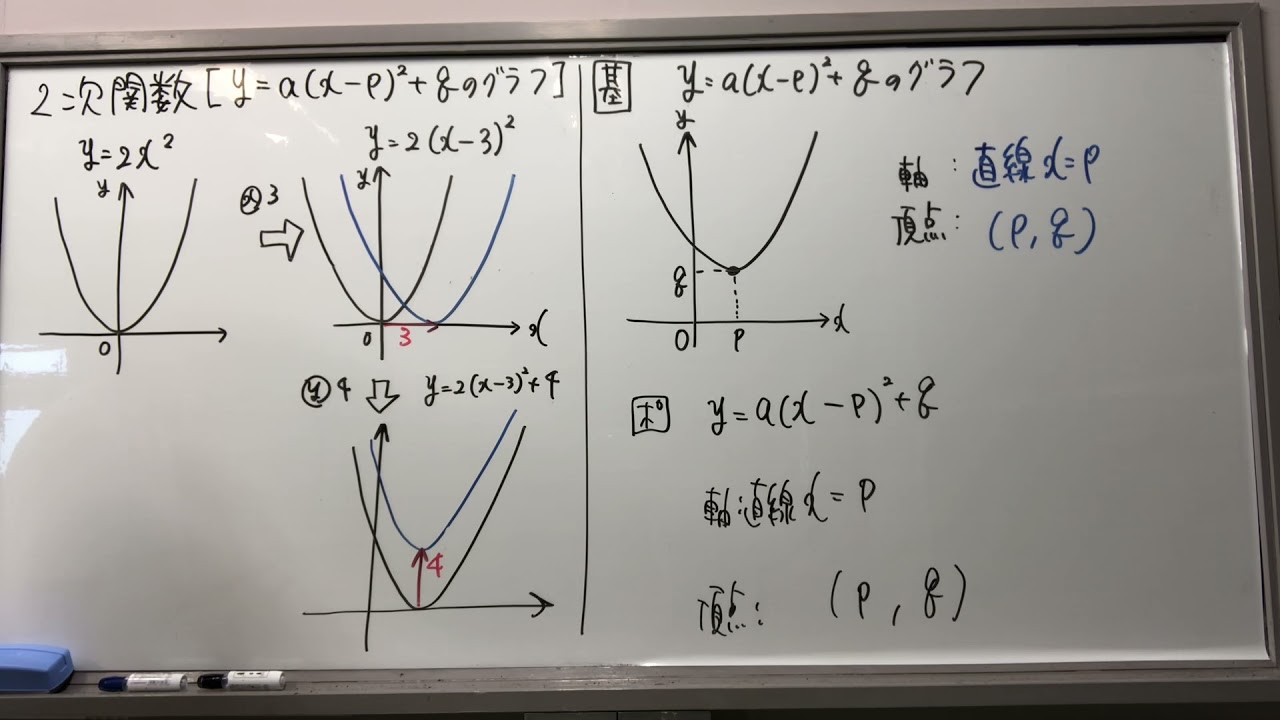 2次関数[y=a(x-p)²+qのグラフ]
y=2x²
y
0
ⓧ3
y=2(x-3)²
y
x
0
3
ⓨ4
y=2(x-3)²+4
4
基
y=a(x-p)²+qのグラフ
y
q
0
p
x
軸:直線x=p
頂点:(p,q)
ポ
y=a(x-p)²+q
軸:直線x=p
頂点:(p,q)